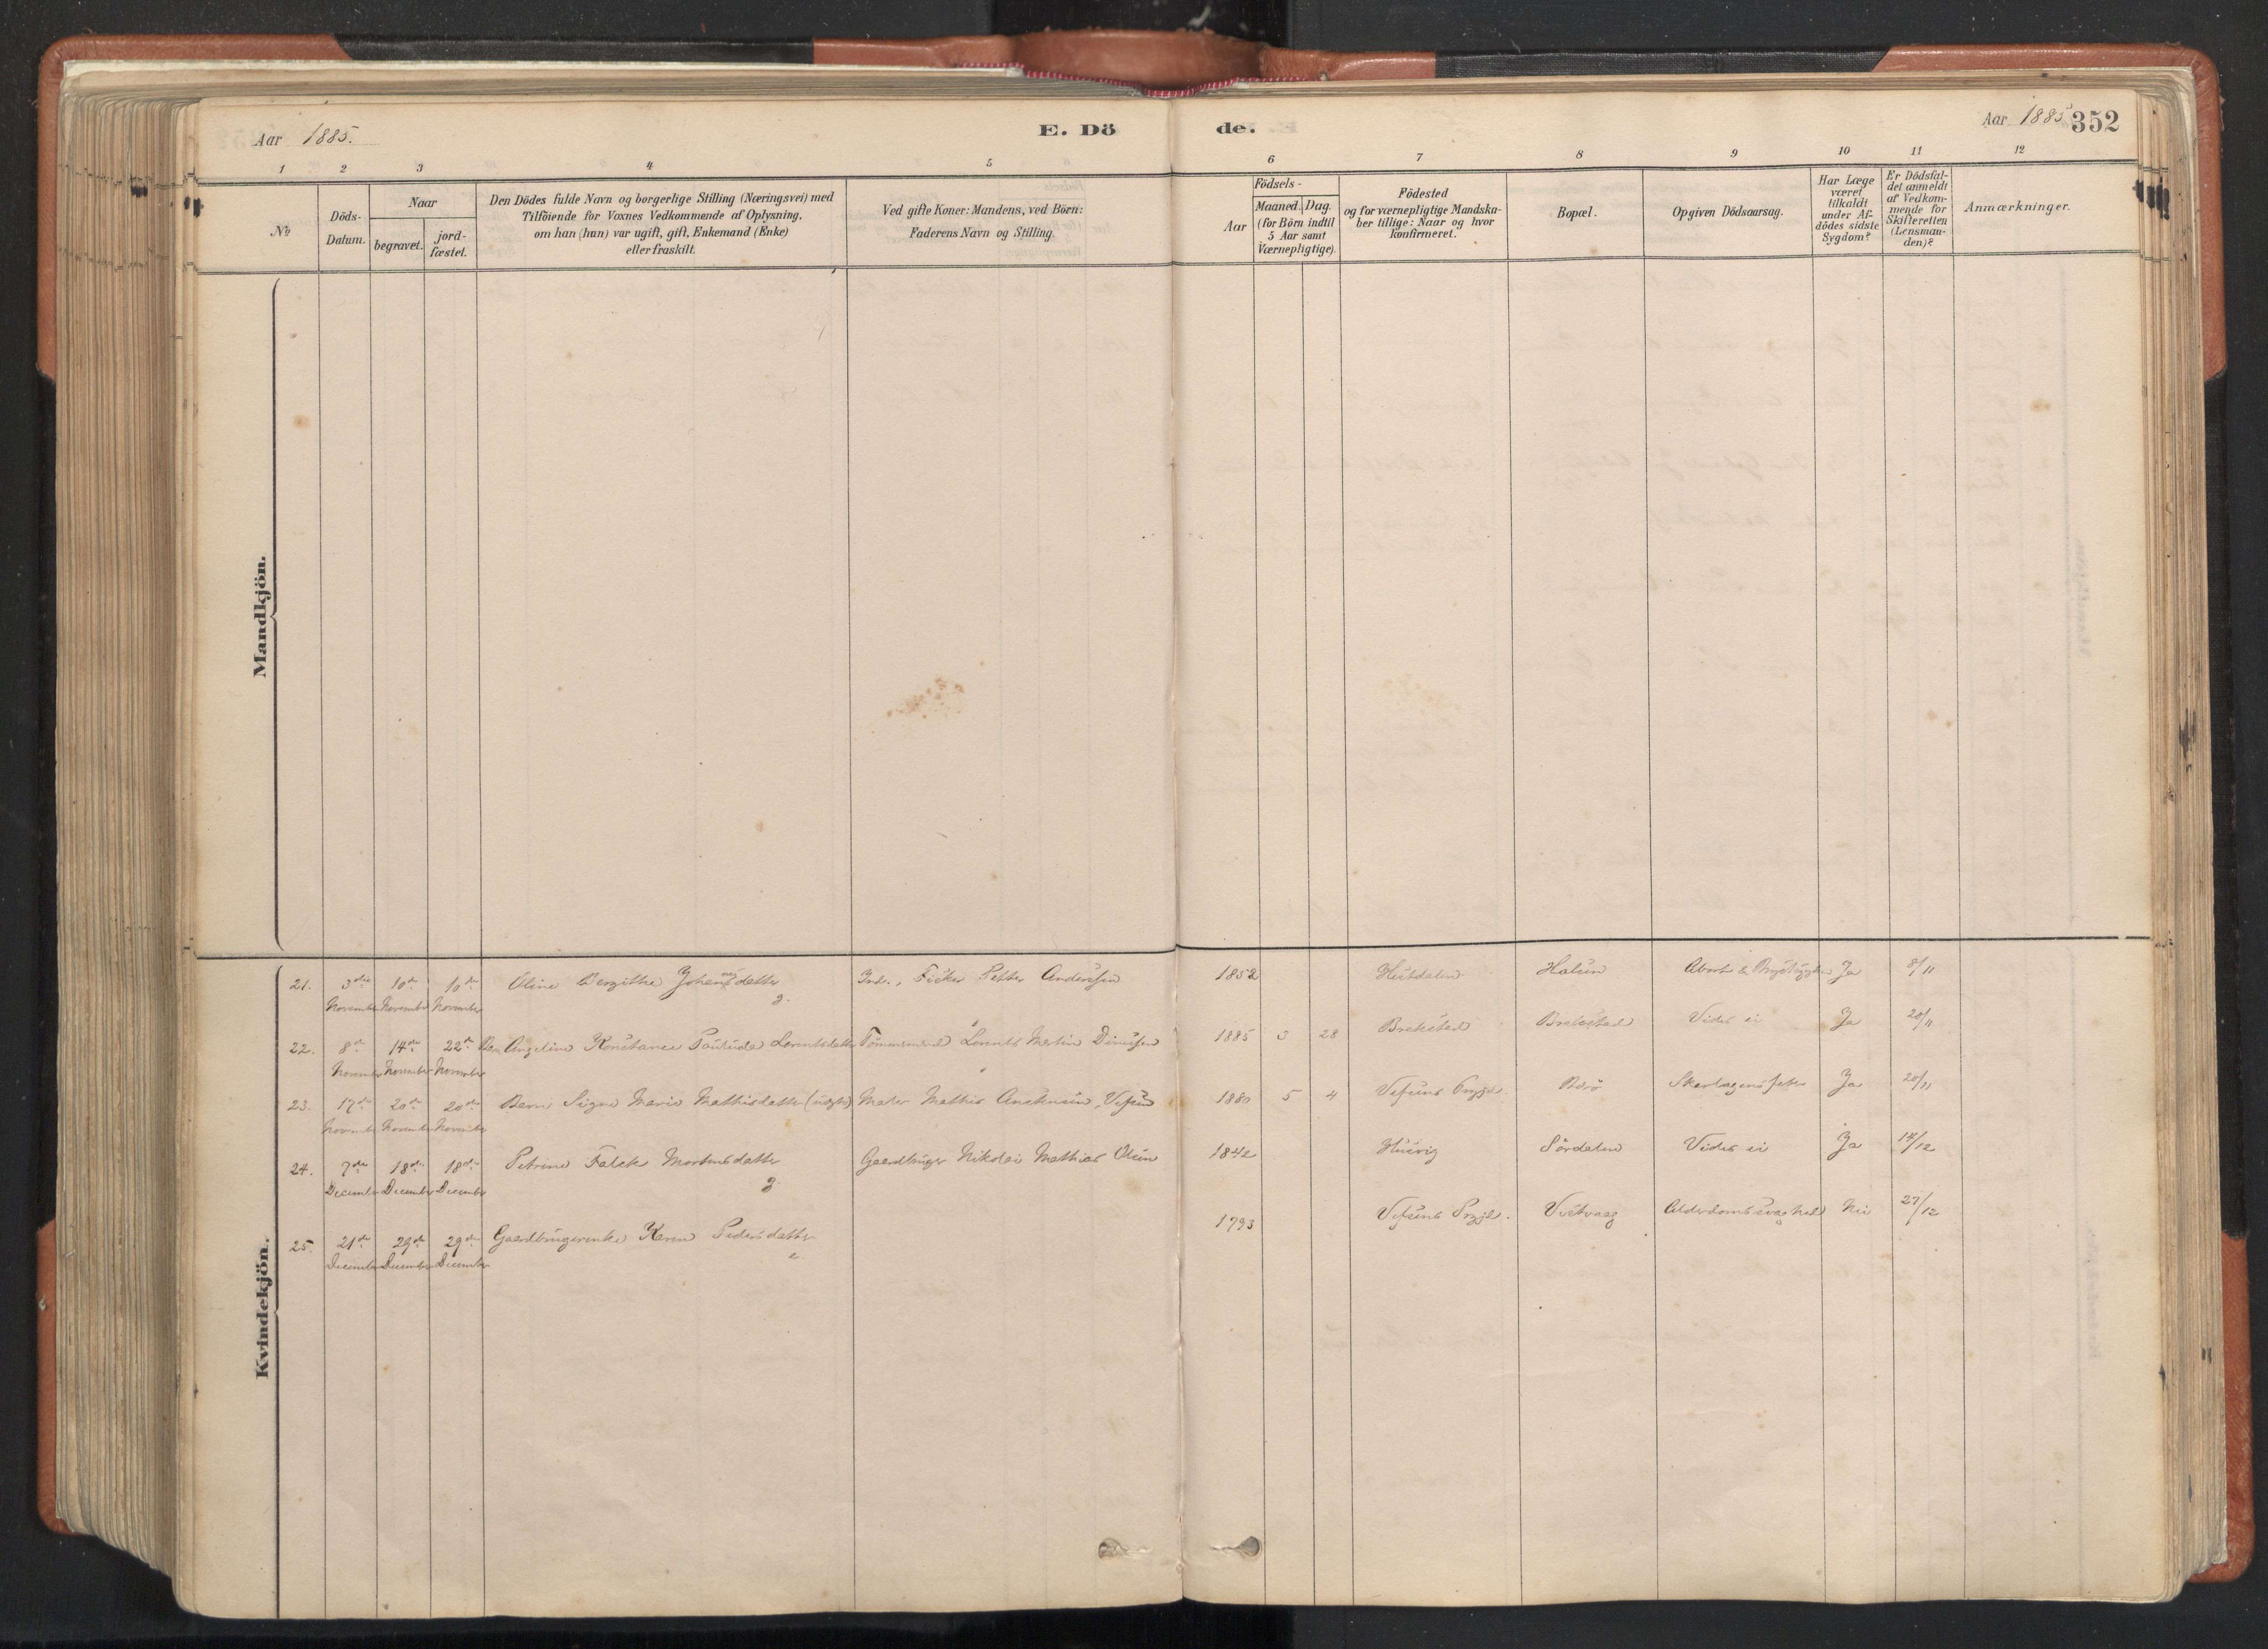 Aar 1885.
E. Dö
de.
Aar 1885 352
1 2 3 4 5 6 7 8 9 10 11 12
No
Döds-Datum.
Naar
begravet.
jord-fæstet.
Den Dödes fulde Navn og borgerlige Stilling (Næringsvei) med
Tilföiende for Voxnes Vedkommende af Oplysning,
om han (hun) var ugift, gift, Enkemand (Enke)
eller fraskilt.
Ved gifte Koner: Mandens, ved Börn:
Faderens Navn og Stilling.
Födsels-
Aar
Maaned. Dag.
(for Börn indtil
5 Aar samt
Værnepligtige).
Födested
og for værnepligtige Mandska-
ber tillige: Naar og hvor
konfirmeret.
Bopæl.
Opgiven Dödsaarsag.
Har Læge
været
tilkaldt
under Af-
dödes sidste
Sygdom?
Er Dödsfal-
det anmeldt
af Vedkom-
mende for
Skifteretten
(Lensman-
den)?
Anmærkninger.
Mandkjön.
Kvindekjön.
21. 3die 10de 10de Oline Bergithe Johannesdatter Inds., Fisker Petter Andersen 1852 Hustdalen Halsen Abort & Ja 8/11
November November November g.
22. 8de 14de 22de Barn Angeline Konstance Paulude Lorentsdatter Tömmermand Lorents Martin 1885 3 28 Brekstad Brekstad Vides ei Ja 20/11
November November November
23. 17de 20de 20de Barn Signe Marie Mathisdatter (uægte) Maler Mathis Vefsen 1880 5 4 Vefsens Prgjd. Skarlagensfeber Ja 20/11
November November November
24. 7de 18de 18de Petrine Falck Mortensdatter Gaardbruger Nikolai Mathias Olsen 1842 Husvig Sördalen Vides ei Ja 14/12
December December December g
25. 21de 29de 29de Gaardbrugerenke Karen Pedersdatter 1793 Vefsens Prgjd. Vistvaag Alderdomssvaghed Nei 27/12
December December December e.